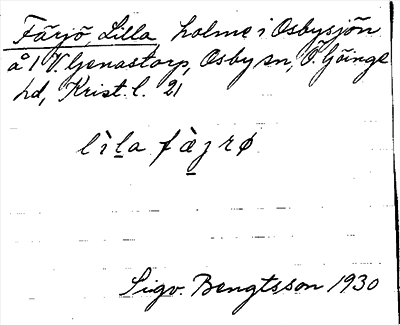 Färjö, Lilla, holme i Osbysjön
å 1 V. Genastorp, Osby sn, Ö. Göinge
hd, Krist. l. 21
lìla fàʒrø
Sigv. Bengtsson 1930